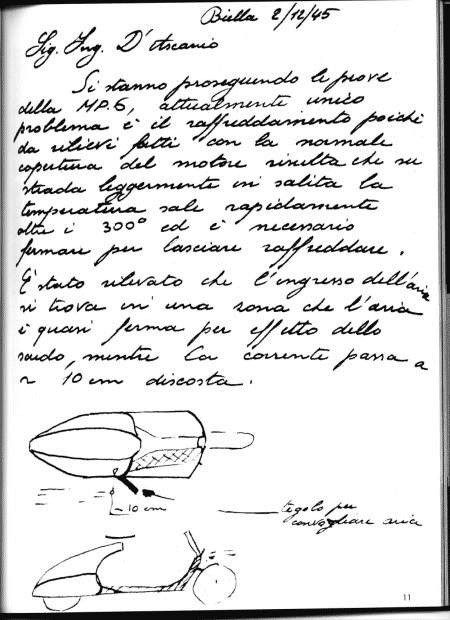 Biella 2/12/45
Sig. Ing. D'Ascanio
Si stanno proseguendo le prove
della MP.6, attualmente unico
problema è il raffreddamento poichè
da rilievi fatti con la normale
copertura del motore risulta che su
strada leggermente in salita la
temperatura sale rapidamente
oltre i 300° ed è necessario
fermare per lasciare raffreddare.
E' stato rilevato che l'ingresso dell'aria
si trova in una zona che l'aria
è quasi ferma per effetto dello
scudo, mentre la corrente passa a
~ 10 cm discosta.
~ 10 cm
tegolo per
convogliare aria
11